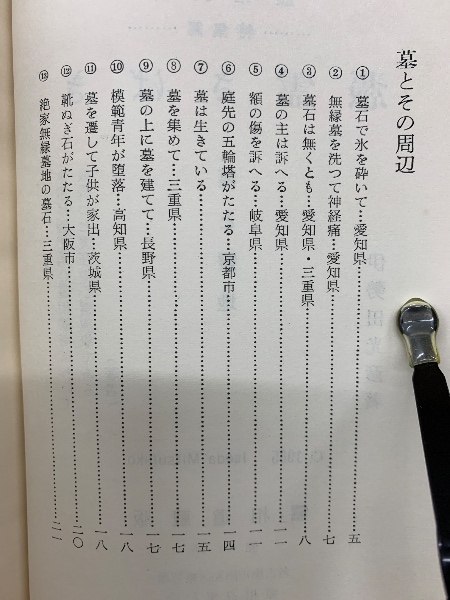 墓とその周辺
① 墓石で氷を砕いて…愛知県……五
② 無縁墓を洗つて神経痛…愛知県……七
③ 墓石は無くとも…愛知県・三重県……八
④ 墓の主は訴へる…愛知県……一一
⑤ 額の傷を訴へる…岐阜県……一一
⑥ 庭先の五輪塔がたたる…京都市……一四
⑦ 墓は生きている……一五
⑧ 墓を集めて…三重県……一七
⑨ 墓の上に墓を建てて…長野県……一七
⑩ 模範青年が堕落…高知県……一八
⑪ 墓を遷して子供が家出…茨城県……一八
⑫ 靴ぬぎ石がたたる…大阪市……二〇
⑬ 絶家無縁墓地の墓石…三重県……二一